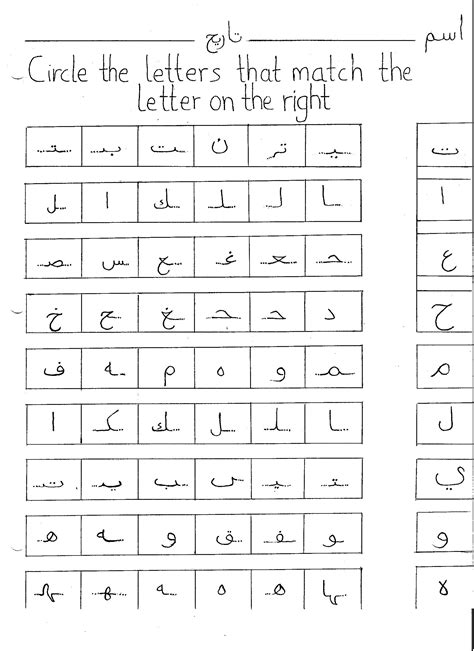 اسم تاريخ
Circle the letters that match the
letter on the right
ت يـ تر ن ـت بـ ـتـ
ا ـا لـ ـلـ ـك ا ـل
ع حـ ـعـ غـ ـع ـس ـصـ
ح د حـ ـحـ ـغ ح خ
م ـمـ و ه م ـه ف
ل ـا ـلـ ـل ـك كـ ا
ي ـتـ يـ ـى ـب ـيـ ـت
و ـو ـفـ ـق و ـه هـ
ه ـها هـ ه ـه ـهـ ـهـ